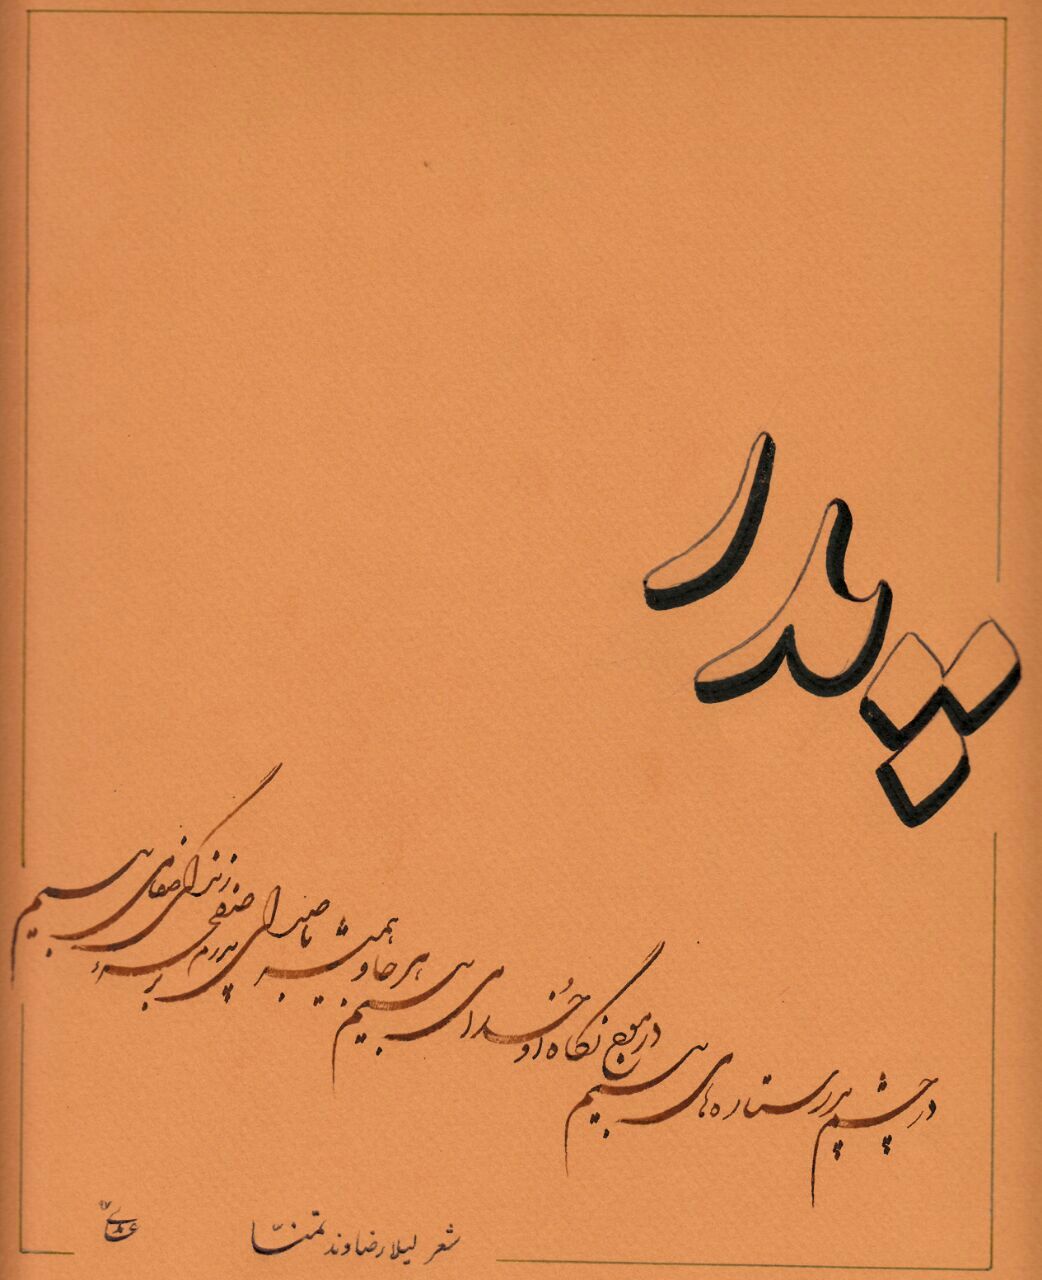 پدر
در چشم پدر ستاره ها می بینم
در موج نگاه او خُدا می بینم
هر جا و همیشه با صدای پدرم
بر صفحهٔ زندگی صفا می بینم
شعر لیلا رضاوند تمنّا
۹۷